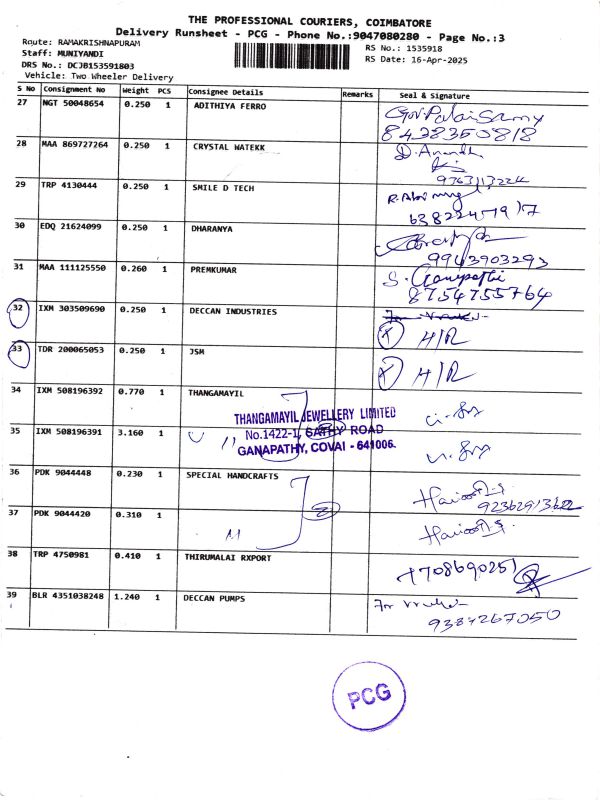 THE PROFESSIONAL COURIERS, COIMBATORE
Delivery Runsheet - PCG - Phone No.:9047080280 - Page No.:3
Route: RAMAKRISHNAPURAM
Staff: MUNIYANDI
DRS No.: DCJB153591803
Vehicle: Two Wheeler Delivery
RS No.: 1535918
RS Date: 16-Apr-2025
S No Consignment No Weight PCS Consignee Details Remarks Seal & Signature
27 NGT 50048654 0.250 1 ADITHIYA FERRO
8438350818
28 MAA 869727264 0.250 1 CRYSTAL WATEKK D. Anandh
29 TRP 4130444 0.250 1 SMILE D TECH
30 EDQ 21624099 0.250 1 DHARANYA
9943903293
31 MAA 111125550 0.260 1 PREMKUMAR S. Ganapathi
8754755764
32 IXM 303509690 0.250 1 DECCAN INDUSTRIES H/R
33 TDR 200065053 0.250 1 JSM H/R
34 IXM 508196392 0.770 1 THANGAMAYIL
THANGAMAYIL JEWELLERY LIMITED
No.1422-1, SATHY ROAD
GANAPATHY, COVAI - 641006.
35 IXM 508196391 3.160 1
36 PDK 9044448 0.230 1 SPECIAL HANDCRAFTS
37 PDK 9044420 0.310 1
38 TRP 4750981 0.410 1 THIRUMALAI RXPORT
7708690251
39 BLR 4351038248 1.240 1 DECCAN PUMPS
9384267050
PCG